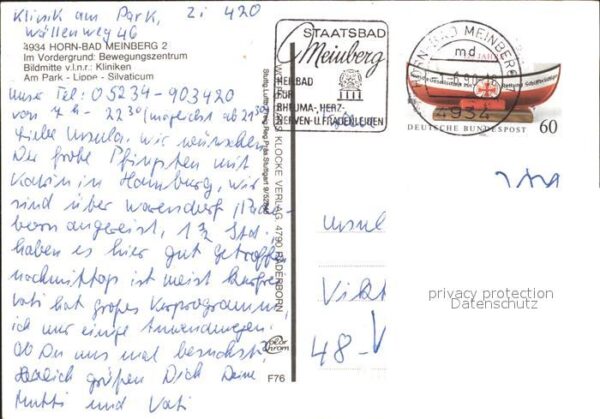 Klinik am Park, Zi 420
Wällenweg 46
4934 HORN-BAD MEINBERG 2
Im Vordergrund: Bewegungszentrum
Bildmitte v.l.n.r.: Kliniken
Am Park - Lippe - Silvaticum
Unser Tel: 05234-903420
von 7 h - 22 30 (möglichst ab 21 h)
Liebe Ursula, wir wünschen
Dir frohe Pfingsten mit
Katrin in Hamburg, wir
sind über Warendorf, Pader-
born angereist, 1 3/4 Std.
haben es hier gut getroffen
nachmittags ist meist kurfrei
Vati hat großes Kurprogramm,
ich nur einige Anwendungen.
Ob Du uns mal besuchst?
Herzlich grüßen Dich Deine
Mutti und Vati
STAATSBAD
Meinberg
HEILBAD
FÜR
RHEUMA-, HERZ-,
NERVEN- U. FRAUENLEIDEN
HORN-BAD MEINBERG
md
4934
JAHRE
DEUTSCHE BUNDESPOST 60
KLOCKE VERLAG, 4790 PADERBORN
color
chrom
F76
Ursul
Vikt
48-
privacy protection
Datenschutz